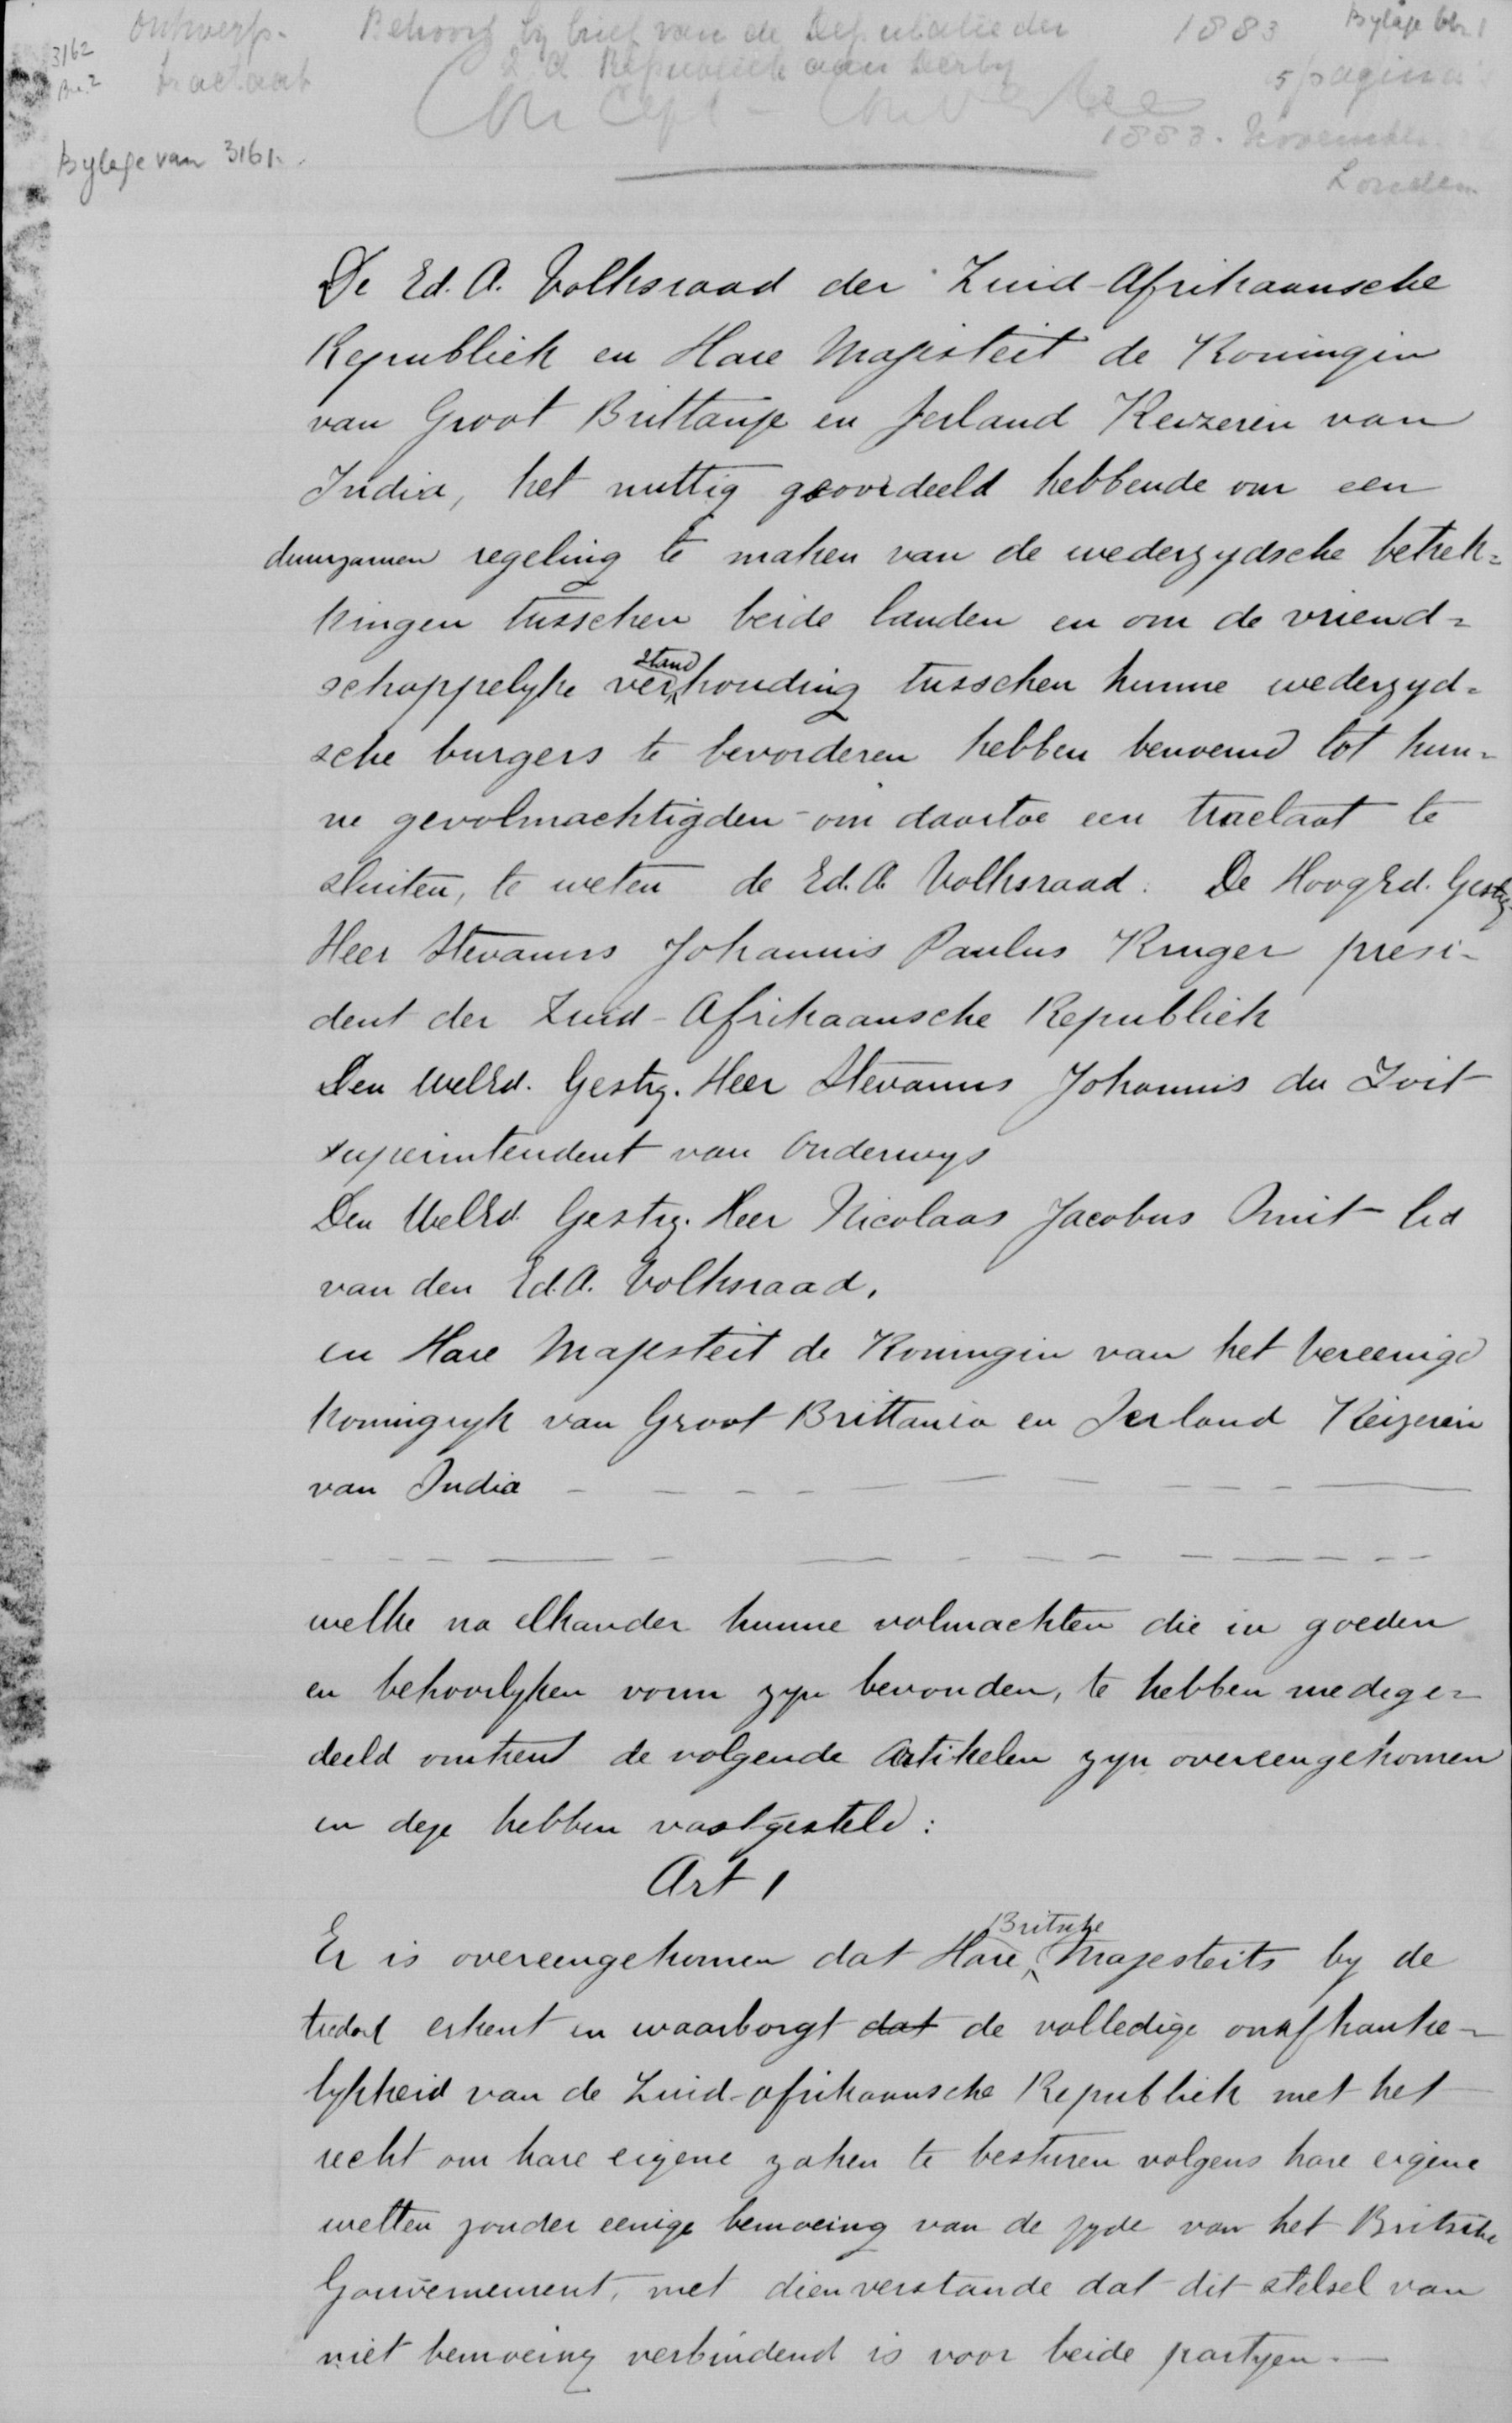 3162
Ontwerp-
tractaat
Behoort by brief van de Deputatie der
Z A Republiek aan Derby
Concept - Conventie
1883
Bylage
5 pagina's
1883. November
Londen
Bylage van 3161.
De Ed. A. Volksraad der Zuid-Afrikaansche
Republiek en Hare Majesteit de Koningin
van Groot Brittanje en Ierland Keizerin van
India, het nuttig geoordeeld hebbende om een
duurzamen regeling te maken van de wederzydsche betrek=
kingen tusschen beide landen en om de vriend=
schappelyke verstandhouding tusschen hunne wederzyd=
sche burgers te bevorderen hebben benoemd tot hun=
ne gevolmachtigden om daartoe een tractaat te
sluiten, te weten de Ed. A. Volksraad: De HoogEd. Gestr.
Heer Stevanus Johannis Paulus Kruger presi-
dent der Zuid-Afrikaansche Republiek
Den WelEd. Gestr. Heer Stevanus Johannis du Toit
superintendent van Onderwys
Den WelEd. Gestr. Heer Nicolaas Jacobus Smit lid
van den Ed. A. Volksraad.
en Hare Majesteit de Koningin van het Vereenigd
Koningryk van Groot Brittania en Ierland Keizerin
van India
welke na elkander hunne volmachten die in goeden
en behoorlyken vorm zyn bevonden, te hebben medege=
deeld omtrent de volgende Artikelen zyn overeengekomen
en deze hebben vastgesteld:
Art 1
Er is overeengekomen dat Hare Britsche Majesteits by de
tractaat erkent en waarborgt dat de volledige onafhanke-
lykheid van de Zuid-Afrikaansche Republiek met het
recht om hare eigene zaken te besturen volgens hare eigene
wetten zonder eenige bemoeiing van de zyde van het Britsche
Gouvernement, met dien verstande dat dit stelsel van
niet bemoeiing verbindend is voor beide partyen.